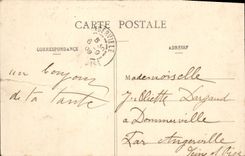 CARTE POSTALE
CORRESPONDANCE
ADRESSE
un bonjour
de ta tante
Mademoiselle
Juliette Durand
à Dommerville
Par Angerville
Seine et Oise